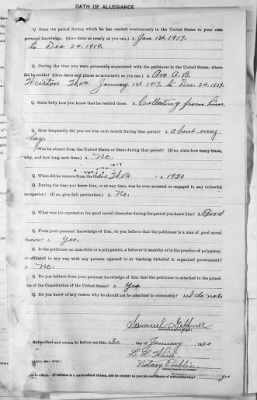 OATH OF ALLEGIANCE
Q. State the period during which he has resided continuously in the United States to your own
personal knowledge. (Give dates as nearly as you can.) A. Jan 1st 1917.
to Dec 20. 1919.
Q. During the time you were personally acquainted with the petitioner in the United States, where
did he reside? (Give dates and places as accurately as you can.) A. Ave A. B.
January 1st 1917 to Dec 20. 1919.
Q. State fully how you know that he resided there. A. Collecting from him
Q. How frequently did you see him each month during that period? A. about every
day.
Q. Was he absent from the United States or State during that period? (If so, state how many times,
why, and how long each time.) A. No.
Q. When did he remove from the State of A. 1920
Q. During the time you knew him, or at any time, was he ever arrested or engaged in any unlawful
occupation? (If so, give full particulars.) A. No.
Q. What was his reputation for good moral character during the period you knew him? A. Good
Q. From your personal knowledge of him, do you believe that the petitioner is a man of good moral
character? A. Yes.
Q. Is the petitioner an anarchist or a polygamist, a believer in anarchy or in the practice of polygamy,
or affiliated in any way with any persons opposed to or teaching disbelief in organized government?
A. No.
Q. Do you believe from your personal knowledge of him that the petitioner is attached to the princi-
ples of the Constitution of the United States? A. Yes
Q. Do you know of any reason why he should not be admitted to citizenship? A. I do not
Samuel
Subscribed and sworn to before me this 30 day of January 1920
Notary Public